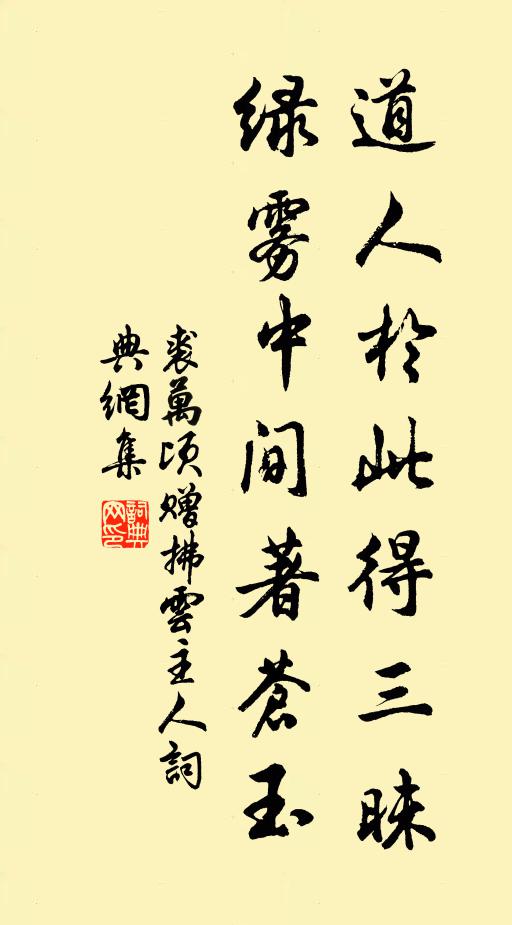 道人於此得三昧
绿雾中间著蒼玉
裘萬顷赠拂雲主人詞
典網集
詞典
网印